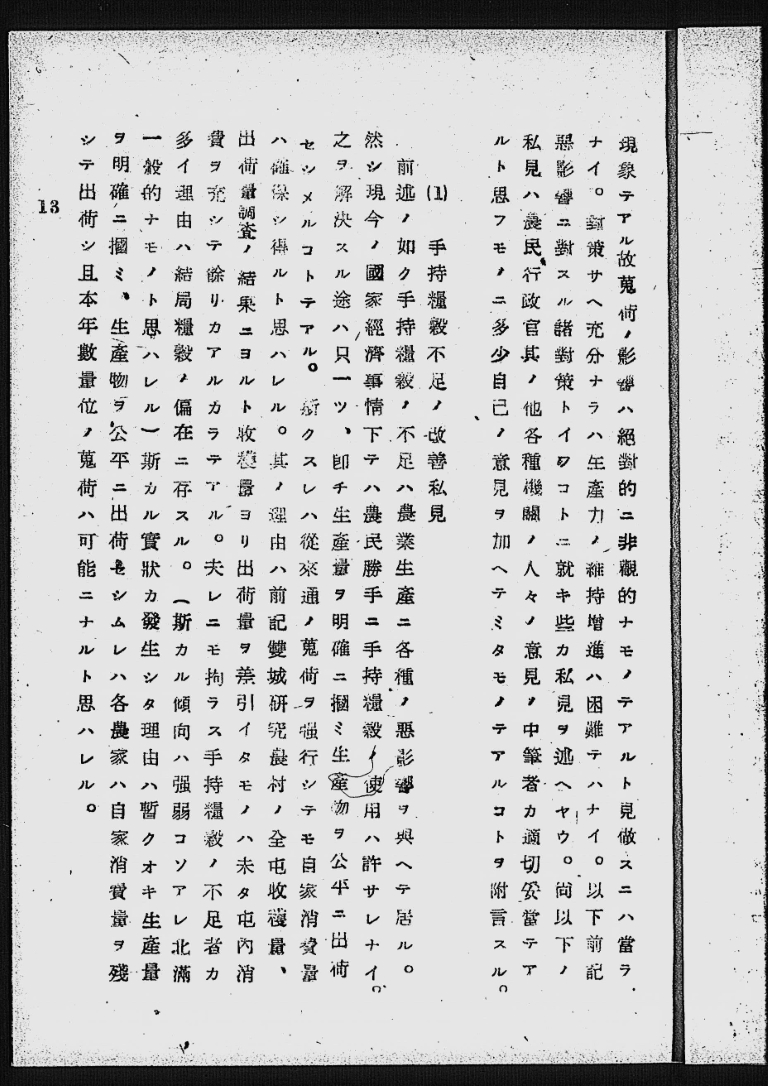 現象テアル故蒐荷ノ影響ハ絕對的ニ非觀的ナモノテアルト見做スニハ當ラ
ナイ。對策サヘ充分ナラハ生產力ノ維持增進ハ困難テハナイ。以下前記
惡影響ニ對スル諸對策トイフコトニ就キ些カ私見ヲ述ヘヤウ。尙以下ノ
私見ハ農民行政官其ノ他各種機關ノ人々ノ意見ノ中筆者カ適切妥當テア
ルト思フモノニ多少自己ノ意見ヲ加ヘテミタモノテアルコトヲ附言スル。
(1) 手持糧穀不足ノ改善私見
前述ノ如ク手持糧穀ノ不足ハ農業生產ニ各種ノ惡影響ヲ與ヘテ居ル。
然シ現今ノ國家經濟事情下テハ農民勝手ニ手持糧穀ノ使用ハ許サレナイ。
之ヲ解決スル途ハ只一ツ、卽チ生產量ヲ明確ニ摑ミ生產物ヲ公平ニ出荷
セシメルコトテアル。斯クスレハ從來通ノ蒐荷ヲ强行シテモ自家消費量
ハ確保シ得ルト思ハレル。其ノ理由ハ前記雙城硏究農村ノ全屯收穫量、
出荷量調査ノ結果ニヨルト收穫量ヨリ出荷量ヲ差引イタモノハ未タ屯內消
費ヲ充シテ餘リカアルカラテアル。夫レニモ拘ラス手持糧穀ノ不足者カ
多イ理由ハ結局糧穀ノ偏在ニ存スル。(斯カル傾向ハ强弱コソアレ北滿
一般的ナモノト思ハレル)斯カル實狀カ發生シタ理由ハ暫クオキ生產量
ヲ明確ニ摑ミ、生產物ヲ公平ニ出荷セシムレハ各農家ハ自家消費量ヲ殘
シテ出荷シ且本年數量位ノ蒐荷ハ可能ニナルト思ハレル。
13